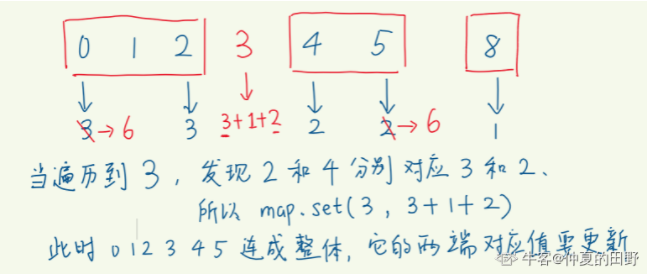 0 1 2 3 4 5 8
3→6 3 3+1+2 2 2→6 1
当遍历到3，发现2和4分别对应3和2、
所以 map.set(3, 3+1+2)
此时 0 1 2 3 4 5 连成整体，它的两端对应值需更新
牛客@仲夏的田野